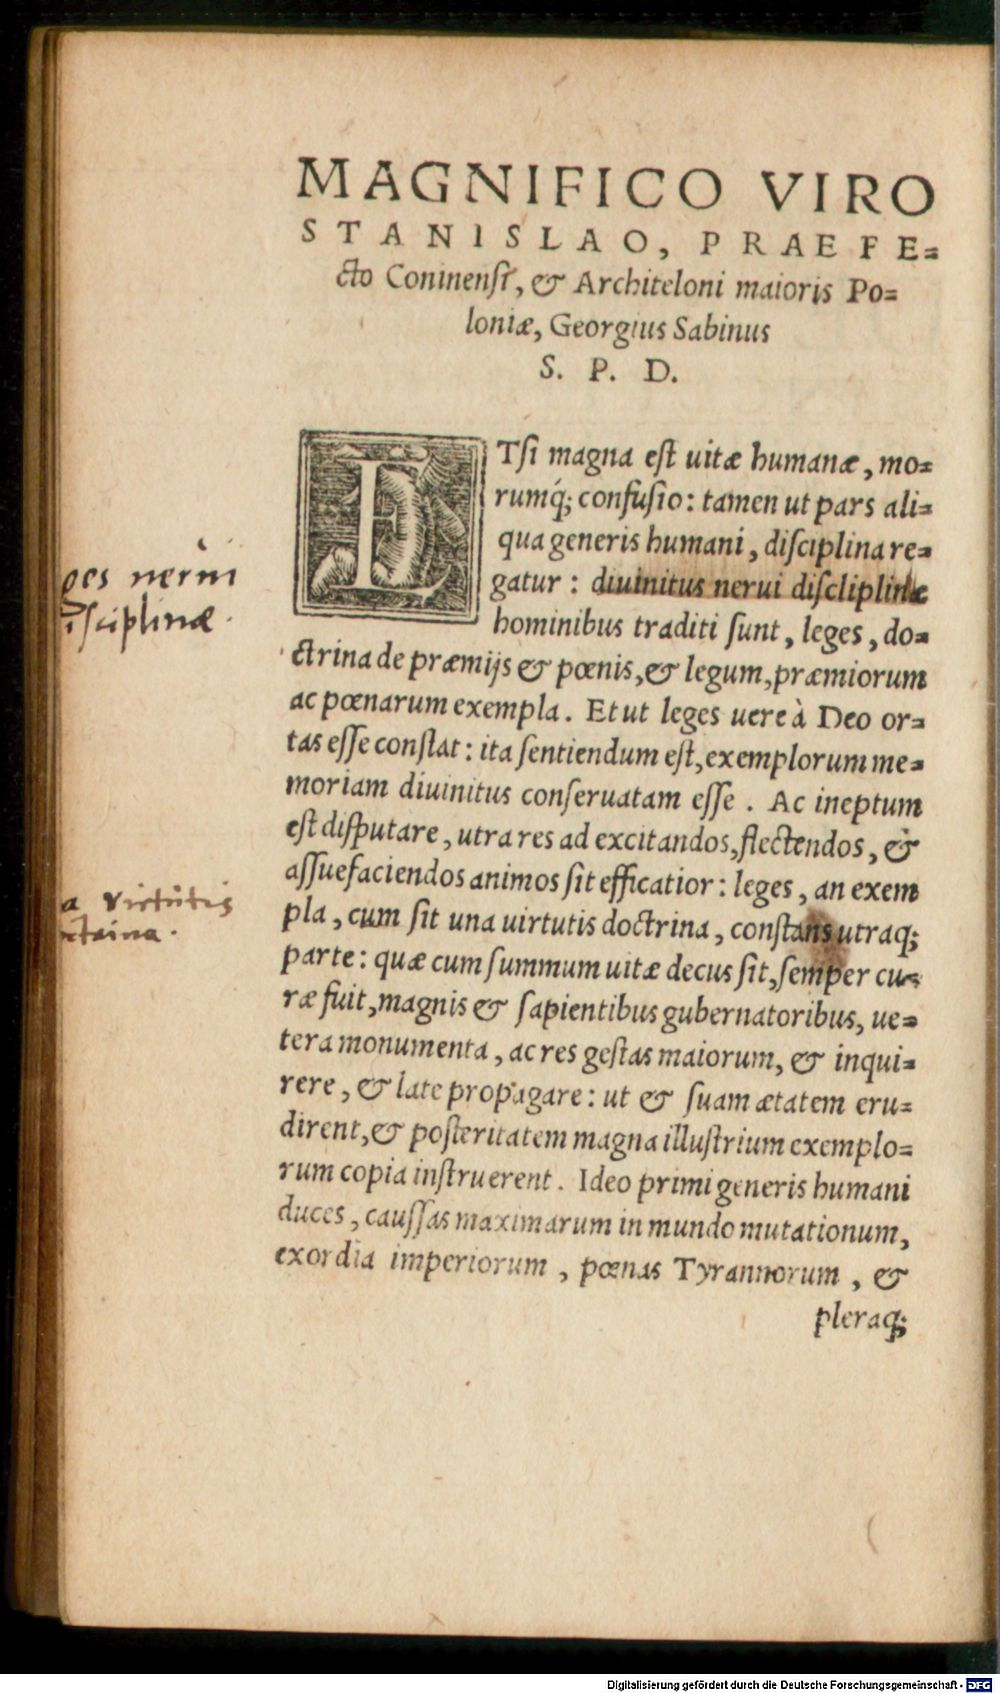 MAGNIFICO VIRO
STANISLAO, PRAEFE=
cto Coninensi, & Architeloni maioris Po=
loniæ, Georgius Sabinus
S. P. D.
ETſi magna eſt uitæ humanæ, mo=
rumq́; confuſio: tamen ut pars ali=
qua generis humani, diſciplina re=
gatur: diuinitus nerui diſcliplinæ
hominibus traditi ſunt, leges, do=
ctrina de præmijs & pœnis, & legum, præmiorum
ac pœnarum exempla. Et ut leges uere à Deo or=
tas eſſe conſtat: ita ſentiendum eſt, exemplorum me=
moriam diuinitus conſeruatam eſſe. Ac ineptum
eſt diſputare, utra res ad excitandos, flectendos, &
aſſuefaciendos animos ſit efficatior: leges, an exem
pla, cum ſit una uirtutis doctrina, conſtans utraq;
parte: quæ cum ſummum uitæ decus ſit, ſemper cu=
ræ fuit, magnis & ſapientibus gubernatoribus, ue=
tera monumenta, ac res geſtas maiorum, & inqui=
rere, & late propagare: ut & ſuam ætatem eru=
dirent, & poſteritatem magna illuſtrium exemplo=
rum copia inſtruerent. Ideo primi generis humani
duces, cauſſas maximarum in mundo mutationum,
exordia imperiorum, pœnas Tyrannorum, &
pleraq;
ges nerui
iſciplinæ.
a virtutis
ctrina.
Digitalisierung gefördert durch die Deutsche Forschungsgemeinschaft - DFG